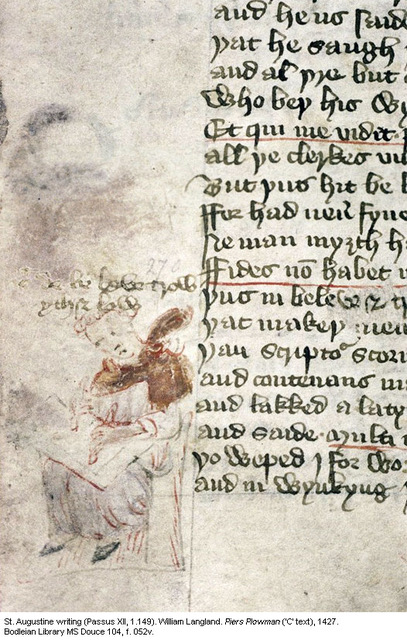 and he us saide
þat he saugh
and al þye but
Who beþ his
Et qui me vidit
all þe clerkes
But þus hit be
ffor had neuer
ne man myȝth h
ffides nō habet
þus in beleue
þat makeþ men
þan scriptor scorn
and contenans
and lakked a laty
and saide multi
þo weped I for wo
and in wynkyng
270
St. Augustine writing (Passus XII, 1.149). William Langland. Piers Plowman ('C' text), 1427.
Bodleian Library MS Douce 104, f. 052v.